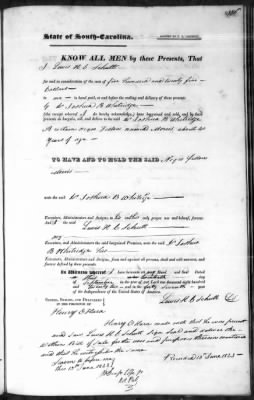 State of South-Carolina.
KNOW ALL MEN by these Presents, That
I Lewis H. C. Schutt
for and in consideration of the sum of five Hundred and twenty five
Dollars
to me in hand paid, at and before the sealing and delivery of these presents
by Dr Joshua B Whitridge
(the receipt whereof I do hereby acknowledge) have bargained and sold, and by these
presents do bargain, sell and deliver to the said Dr Joshua B Whitridge
A certain negro fellow named about
years of age
TO HAVE AND TO HOLD THE SAID, Negro fellow
unto the said Dr Joshua B Whitridge his
Executors, Administrators and Assigns, to his only proper use and behoof, forever.
And I the said Lewis H C Schutt
my
Executors, and Administrators the said bargained Premises, unto the said Dr Joshua
B Whitridge his
Executors, Administrators and Assigns, from and against all persons, shall and will warrant, and
forever defend by these presents.
In Witness whereof, I have hereunto set my Hand and Seal Dated
at this day of
September in the year of our Lord one thousand eight hundred
and twenty two and in the forty seventh year of the
Independence of the United States of America.
SIGNED, SEALED, AND DELIVERED
IN THE PRESENCE OF
Lewis H C Schutt
Henry O'Hara
Henry O Hara made oath that he was present
and saw Lewis H C Schutt sign seal and deliver the
within Bill of sale for the uses and purposes therein mentioned
and that he witnessed the same
Sworn to before me
this 13th June 1823
Recorded 13th June 1823